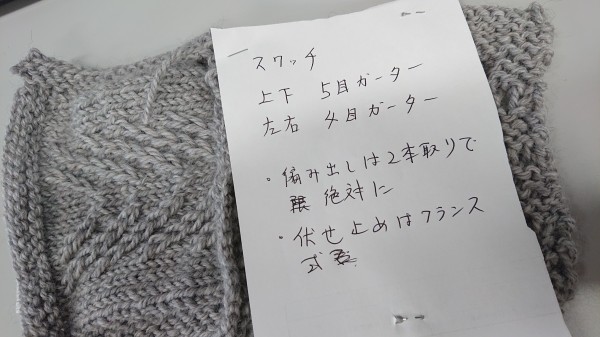 スワッチ
上下 5目ガーター
左右 4目ガーター
・編み出しは2本取りで
絶対に
・伏せ止めはフランス
式